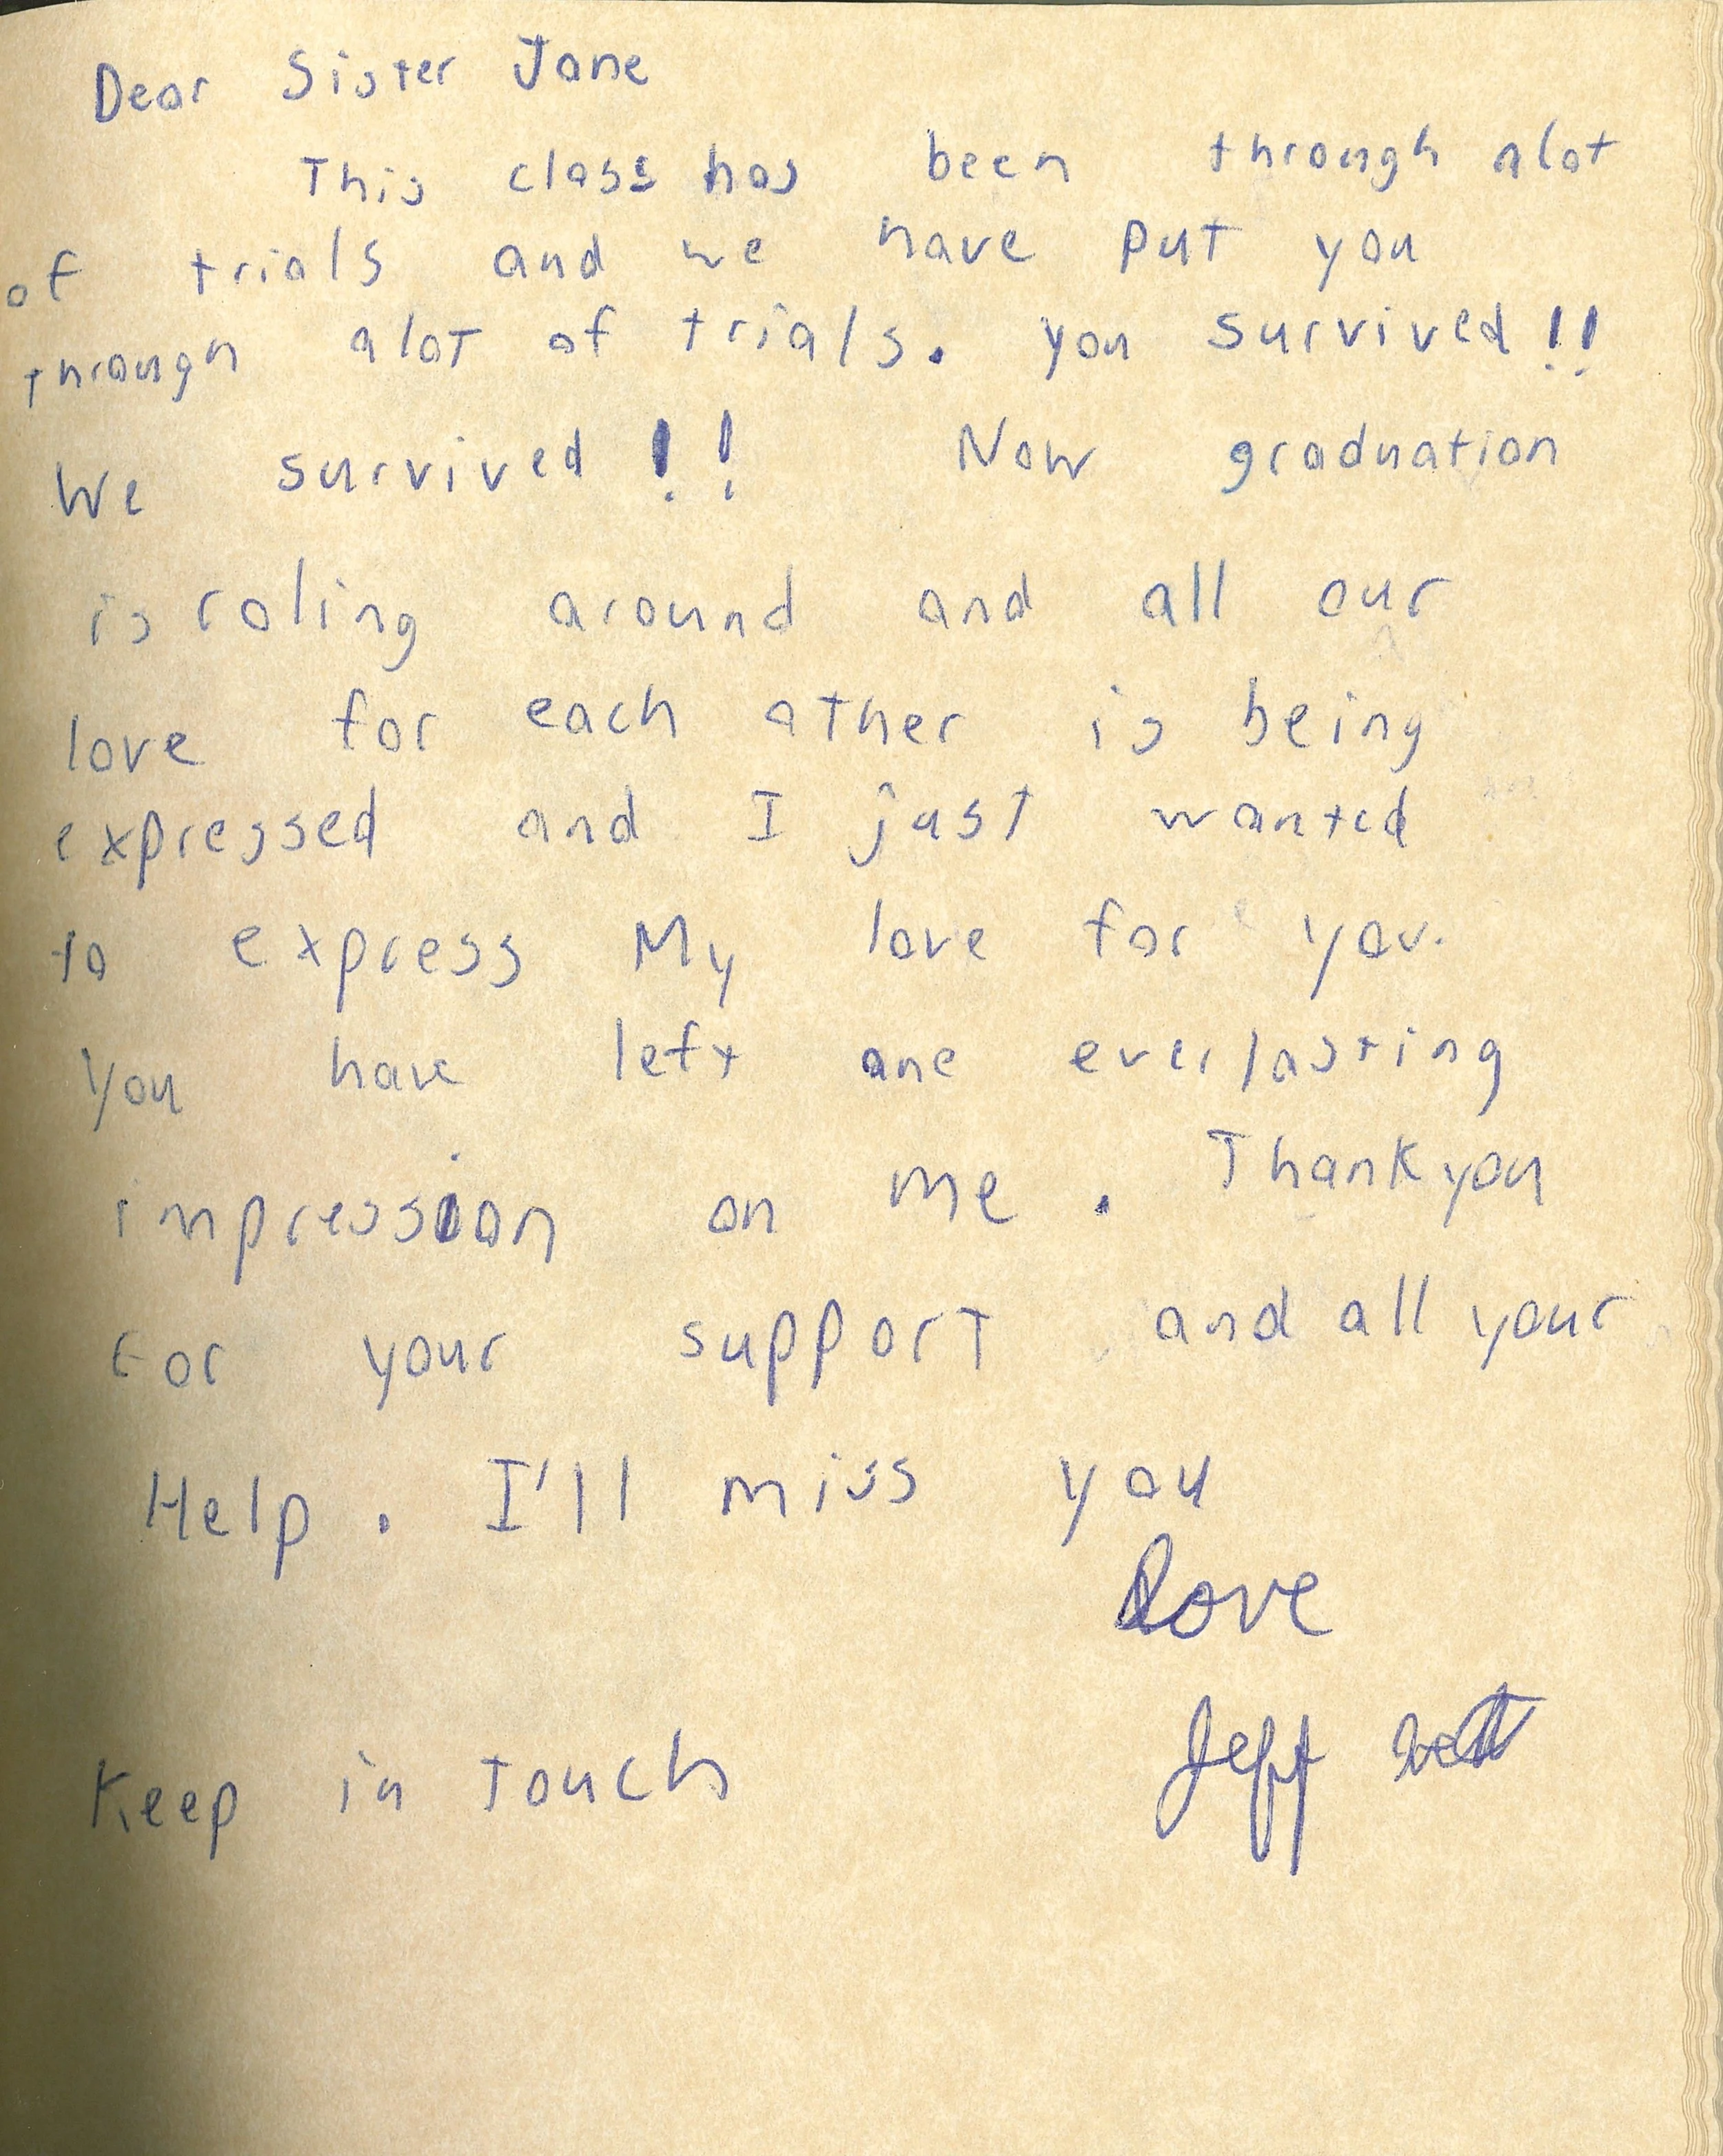 Dear Sister Jane
This class has been through alot
of trials and we have put you
through alot of trials. you survived!!
We survived!! Now graduation
is roling around and all our
love for each other is being
expressed and I just wanted
to express My love for you.
You have left one everlasting
impression on me. Thankyou
for your support and all your
Help. I'll miss you
Love
Jeff
Keep in touch